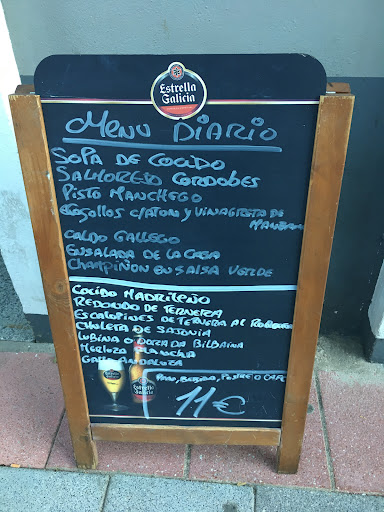 Estrella
Galicia
MENU DIARIO
SOPA DE COCIDO
SALMOREJO CORDOBES
PISTO MANCHEGO
C/ATUN Y VINAGRETA DE
MANZANA
CALDO GALLEGO
ENSALADA DE LA CASA
CHAMPIÑON EN SALSA VERDE
COCIDO MADRILEÑO
REDONDO DE TERNERA
ESCALOPINES DE TERNERA AL ROQUEFORT
CHULETA DE SAJONIA
LUBINA O DORADA BILBAINA
MERLUZA PLANCHA
GALLO ANDALUZA
PAN, BEBIDA, POSTRE O CAFE
11€
Estrella
Galicia